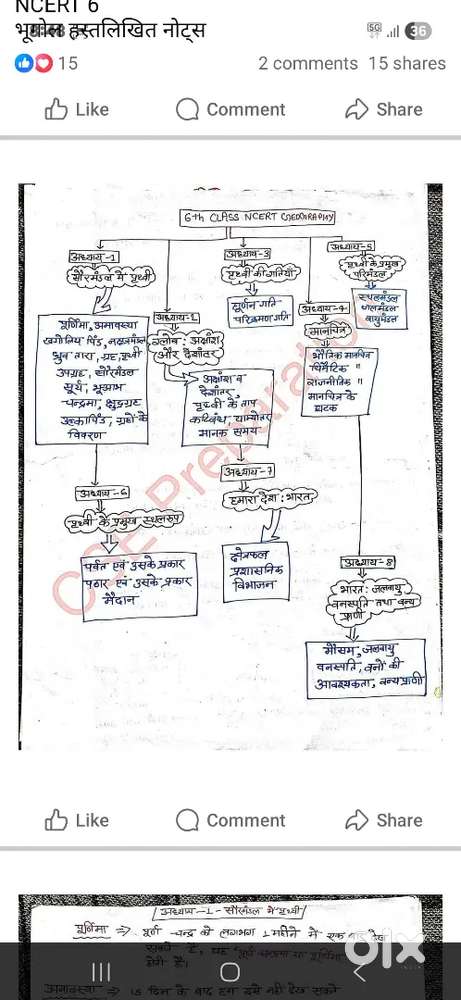 NCERT 6
भूगोल हस्तलिखित नोट्स
5G 36
15
2 comments 15 shares
Like Comment Share
6th CLASS NCERT GEOGRAPHY
अध्याय-1
सौरमंडल में पृथ्वी
पूर्णिमा, अमावस्या
खगोलिय पिंड, नक्षत्रमंडल
ध्रुव तारा, ग्रह, पृथ्वी
उपग्रह, सौरमंडल
सूर्य,
चन्द्रमा, क्षुद्रग्रह
उल्कापिंड, ग्रहों के
विवरण
अध्याय-2
ग्लोब: अक्षांश
और देशांतर
अक्षांश व
देशांतर,
पृथ्वी के ताप
कटिबंध, याम्योत्तर
मानक समय
अध्याय-3
पृथ्वी की गतियाँ
घूर्णन गति
परिक्रमण गति
अध्याय-4
मानचित्र
भौतिक मानचित्र
थिमैटिक "
राजनीतिक "
मानचित्र के
घटक
अध्याय-5
पृथ्वी के प्रमुख
परिमंडल
स्थलमंडल
जलमंडल
वायुमंडल
अध्याय-6
पृथ्वी के प्रमुख स्थलरूप
पर्वत एवं उसके प्रकार
पठार एवं उसके प्रकार
मैदान
अध्याय-7
हमारा देश: भारत
क्षेत्रफल
प्रशासनिक
विभाजन
अध्याय-8
भारत: जलवायु
वनस्पति तथा वन्य
प्राणी
मौसम, जलवायु
वनस्पति, वनों की
आवश्यकता, वन्यप्राणी
CSE Preparation
Like Comment Share
अध्याय-1- सौरमंडल में पृथ्वी
पूर्णिमा ⇒ पूर्ण चन्द्र को लगभग 1 महीने में एक बार देख
सकते हैं, यह पूर्ण चन्द्रमा या पूर्णिमा
होती है।
अमावस्या ⇒ 15 दिन के बाद हम इसे नहीं देख सकते
olx